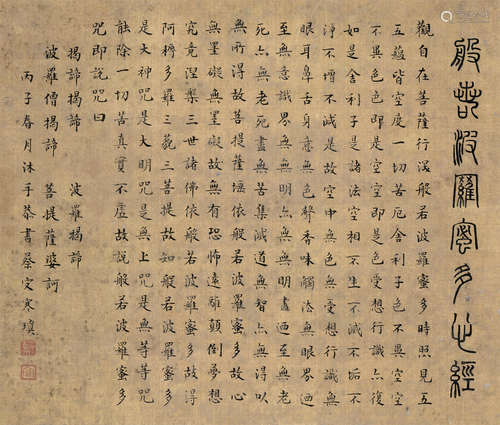 般若波羅蜜多心經
觀自在菩薩行深般若波羅蜜多時照見五
五蘊皆空度一切苦厄舍利子色不異空空
不異色色即是空空即是色受想行識亦復
如是舍利子是諸法空相不生不滅不垢不
淨不增不減是故空中無色無受想行識無
眼耳鼻舌身意無色聲香味觸法無眼界迺
至無意識界無無明亦無無明盡迺至無老
死亦無老死盡無苦集滅道無智亦無得以
無所得故菩提薩埵依般若波羅蜜多故心
無罣礙無罣礙故無有恐怖遠離顛倒夢想
究竟涅槃三世諸佛依般若波羅蜜多故得
阿耨多羅三藐三菩提故知般若波羅蜜多
是大神咒是大明咒是無上咒是無等等咒
能除一切苦真實不虛故說般若波羅蜜多
咒即說咒曰
揭諦揭諦 波羅揭諦
波羅僧揭諦 菩提薩婆訶
丙子春月沐手恭書蔡文寒瓊